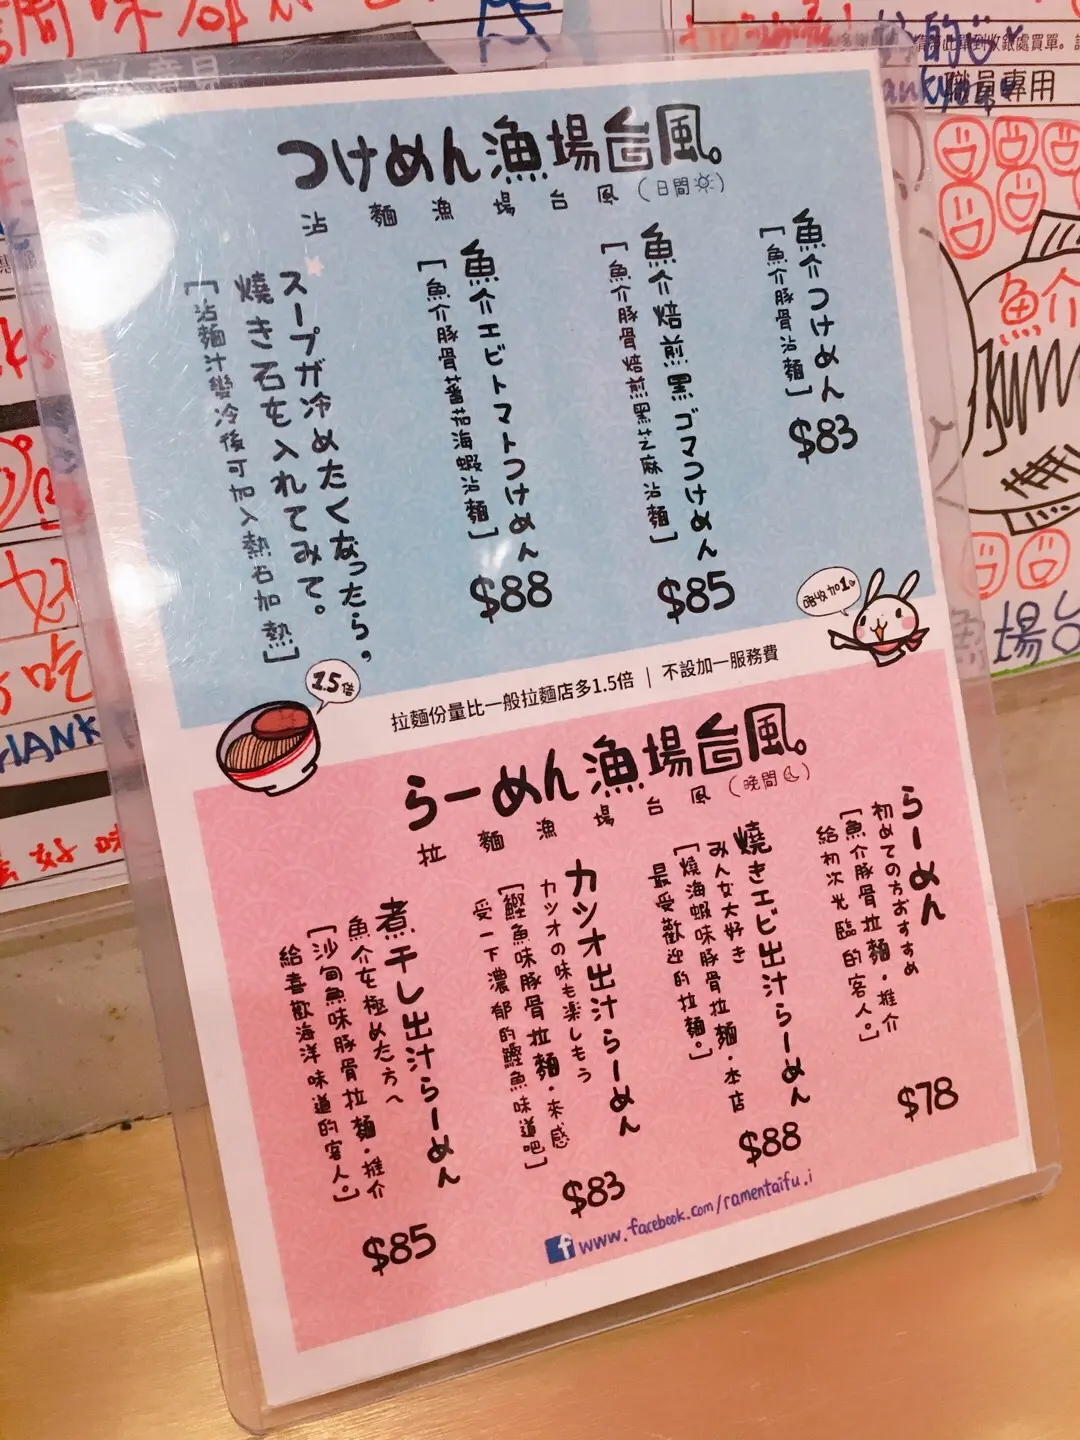 つけめん漁場台風。
沾麵漁場台風(日間)
魚介つけめん
[魚介豚骨沾麵]
$83
魚介焙煎黒ゴマつけめん
[魚介豚骨焙煎黑芝麻沾麵]
$85
魚介エビトマトつけめん
[魚介豚骨蕃茄海蝦沾麵]
$88
スープが冷めたくなったら,
燒き石を入れてみて。
[沾麵汁變冷後可加入熱石加熱]
唔收加1。
1.5倍
拉麵份量比一般拉麵店多1.5倍 | 不設加一服務費
らーめん漁場台風。
拉麵漁場台風(晚間)
らーめん
初めての方おすすめ
[魚介豚骨拉麵·推介
給初次光臨的客人。]
$78
燒きエビ出汁らーめん
みんな大好き
[燒海蝦味豚骨拉麵·本店
最受歡迎的拉麵。]
$88
カツオ出汁らーめん
カツオの味も楽しもう
[鰹魚味豚骨拉麵·來感
受一下濃郁的鰹魚味道吧]
$83
煮干し出汁らーめん
魚介を極めた方へ
[沙甸魚味豚骨拉麵·推介
給喜歡海洋味道的客人。]
$85
www.facebook.com/ramentaifu.i
職員專用
魚介
場台
好味